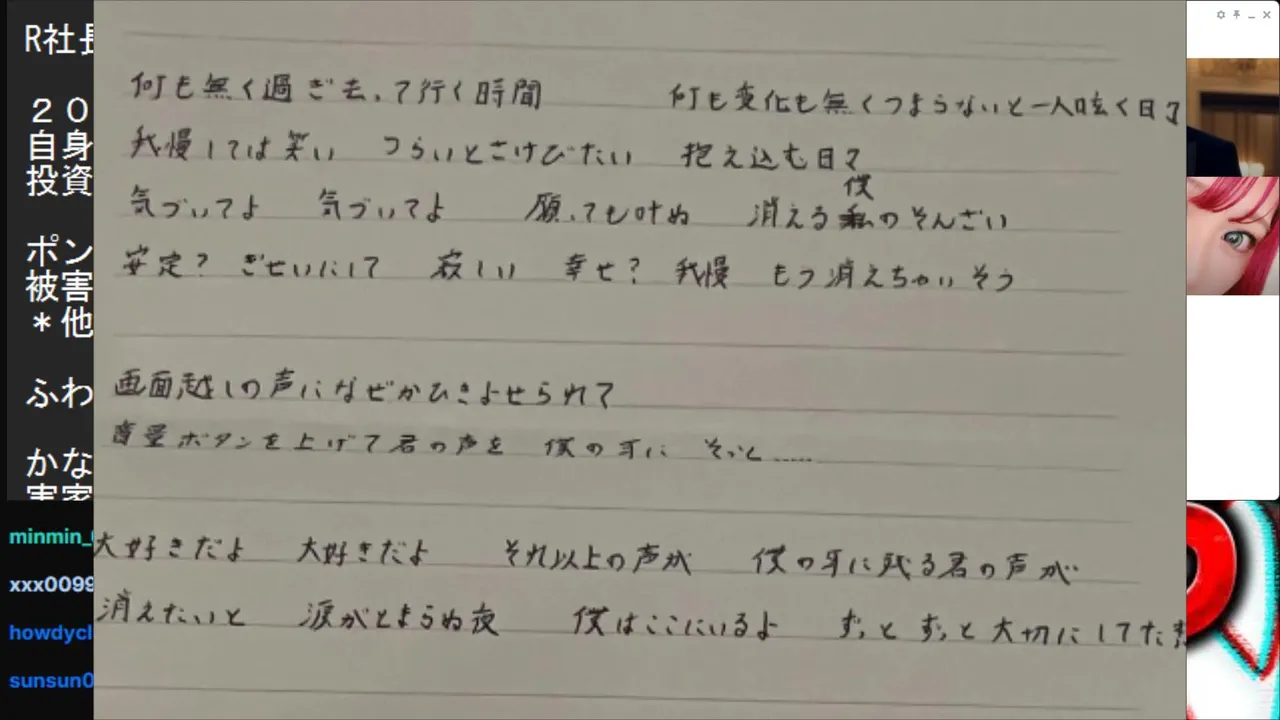 R社長
20
自身
投資
ポン
被害
*他
ふわ
かな
実家
minmin_
xxx0099
howdycl
sunsun0
何も無く過ぎ去って行く時間 何も変化も無くつまらないと一人呟く日々
我慢しては笑い つらいとさけびたい 抱え込む日々
僕
気づいてよ 気づいてよ 願っても叶ぬ 消える私のそんざい
安定? ぎせいにして 寂しい 幸せ? 我慢 もう消えちゃいそう
画面越しの声になぜかひきよせられて
音量ボタンを上げて君の声を 僕の耳に そっと……
大好きだよ 大好きだよ それ以上の声が 僕の耳に残る君の声が
消えたいと 涙がとまらぬ夜 僕はここにいるよ ずっと ずっと 大切にしてた